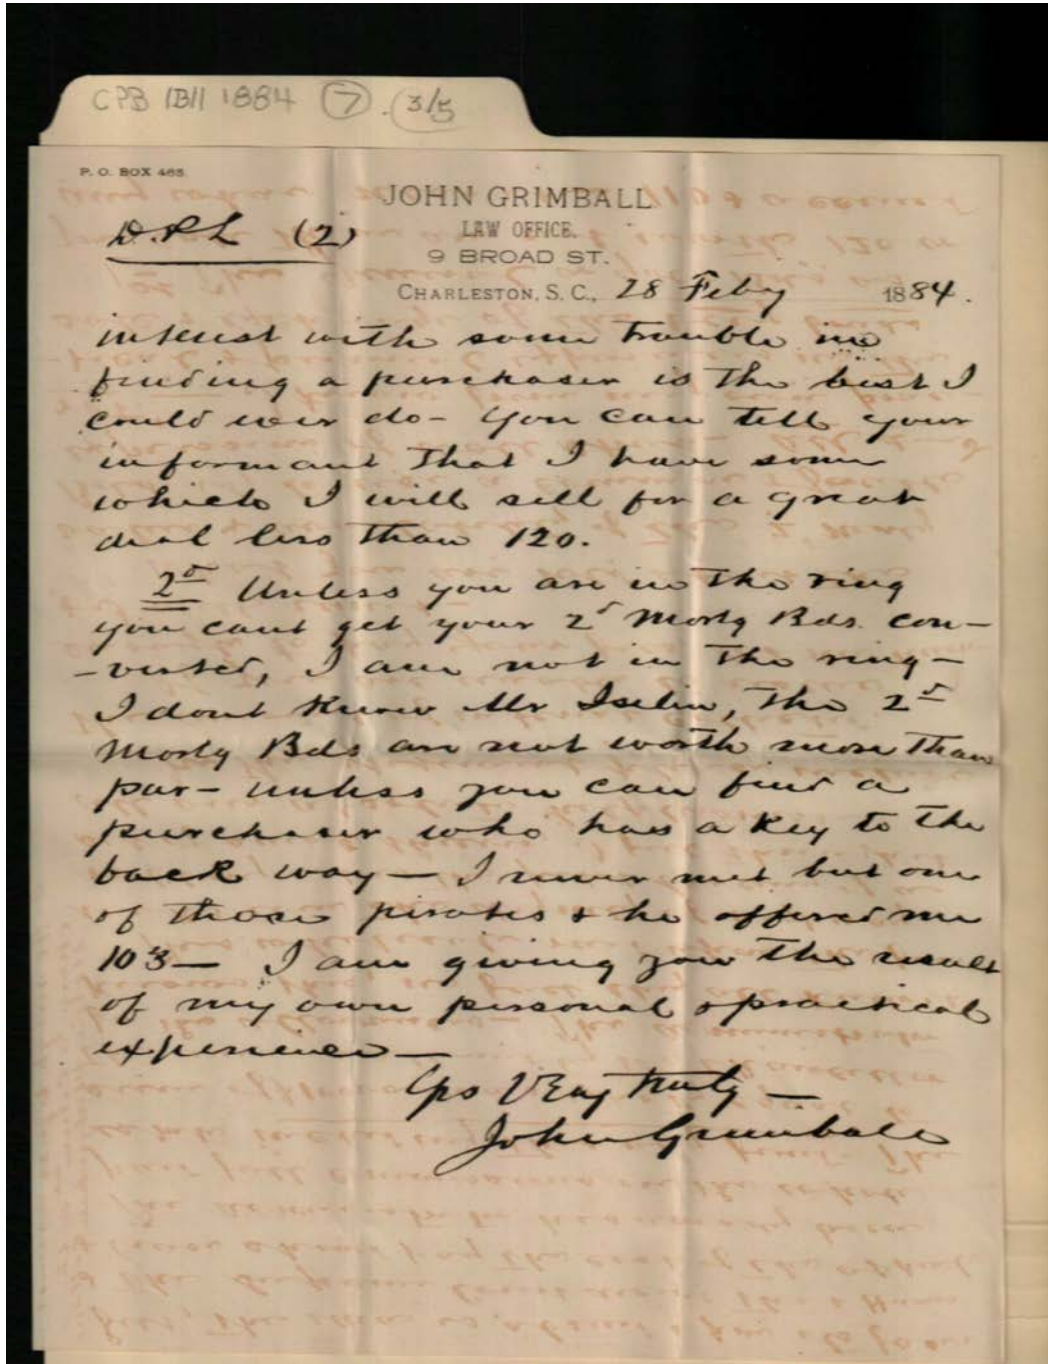 CPB IBII 1884 (7). (3/5)
P. O. BOX 465.
JOHN GRIMBALL
D.P.L (2)
LAW OFFICE.
9 BROAD ST.
CHARLESTON, S. C., 28 Feby 1884.
interest with some trouble in
finding a purchaser is the best I
could ever do - You can tell your
informant that I have some
which I will sell for a great
deal less than 120.
2d Unless you are in the ring
you cant get your 2d Mortg Bds. con-
-verted, I am not in the ring -
I dont know Mr Iselin, the 2d
Mortg Bds are not worth more than
par - unless you can find a
purchaser who has a key to the
back way - I never met but one
of those pirates & he offered me
103 - I am giving you the result
of my own personal & practical
experience -
Yrs Very truly -
John Grimball